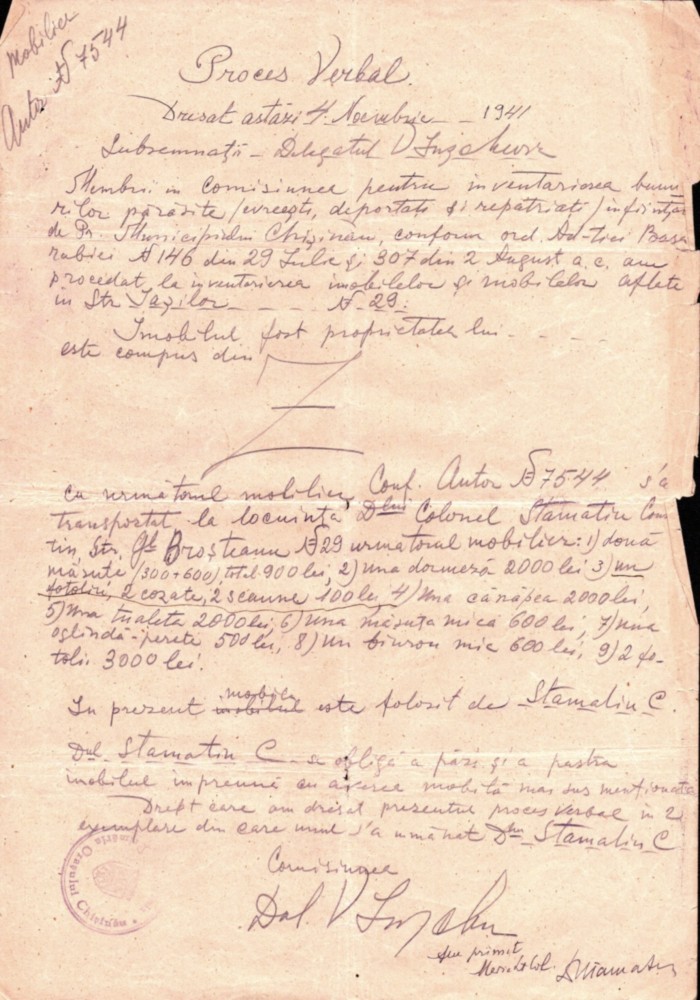 mobilier
Autor № 7544
Proces Verbal
Dresat astăzi 4 Noembrie - 1941
Subsemnații - Delegatul V
Membrii in comisiunea pentru inventarierea bunu
rilor părăsite /evreești, deportați și repatriați/ înființată
de Pr. Municipiului Chișinău, conform ord. Ad-tiei Basa
rabiei № 146 din 29 Iulie și 307 din 2 August a.c. am
procedat la inventarierea imobilelor și mobilelor aflate
in Str. № 29.
Imobilul fost proprietatea lui
este compus din
cu următorul mobilier, Conf. Autor № 7544 s'a
transportat la locuința Dlui Colonel Stamatin Con
tin, Str. Gl. Broșteanu № 29 urmatorul mobilier: 1) două
măsuțe (300+600), total 900 lei, 2) una dormeză 2000 lei 3) un
fotoliu, 2 scaune 100 lei, 4) Una cănăpea 2000 lei,
5) Una tualeta 2000 lei, 6) Una măsuța mica 600 lei, 7) una
oglindă-perete 500 lei, 8) un biurou mic 600 lei, 9) 2 fo-
tolii 3000 lei.
mobila
In prezent mobilul este folosit de Stamatin C.
Dul Stamatin C se obligă a păzi și a pastra
imobilul impreună cu averea mobilă mai sus menționata
Drept care am dresat prezentul proces verbal in 2
exemplare din care unul s'a umânat Dlui Stamatin C
Comisiunea
Primăria Orașului Chișinău
Dal. V
Am primit